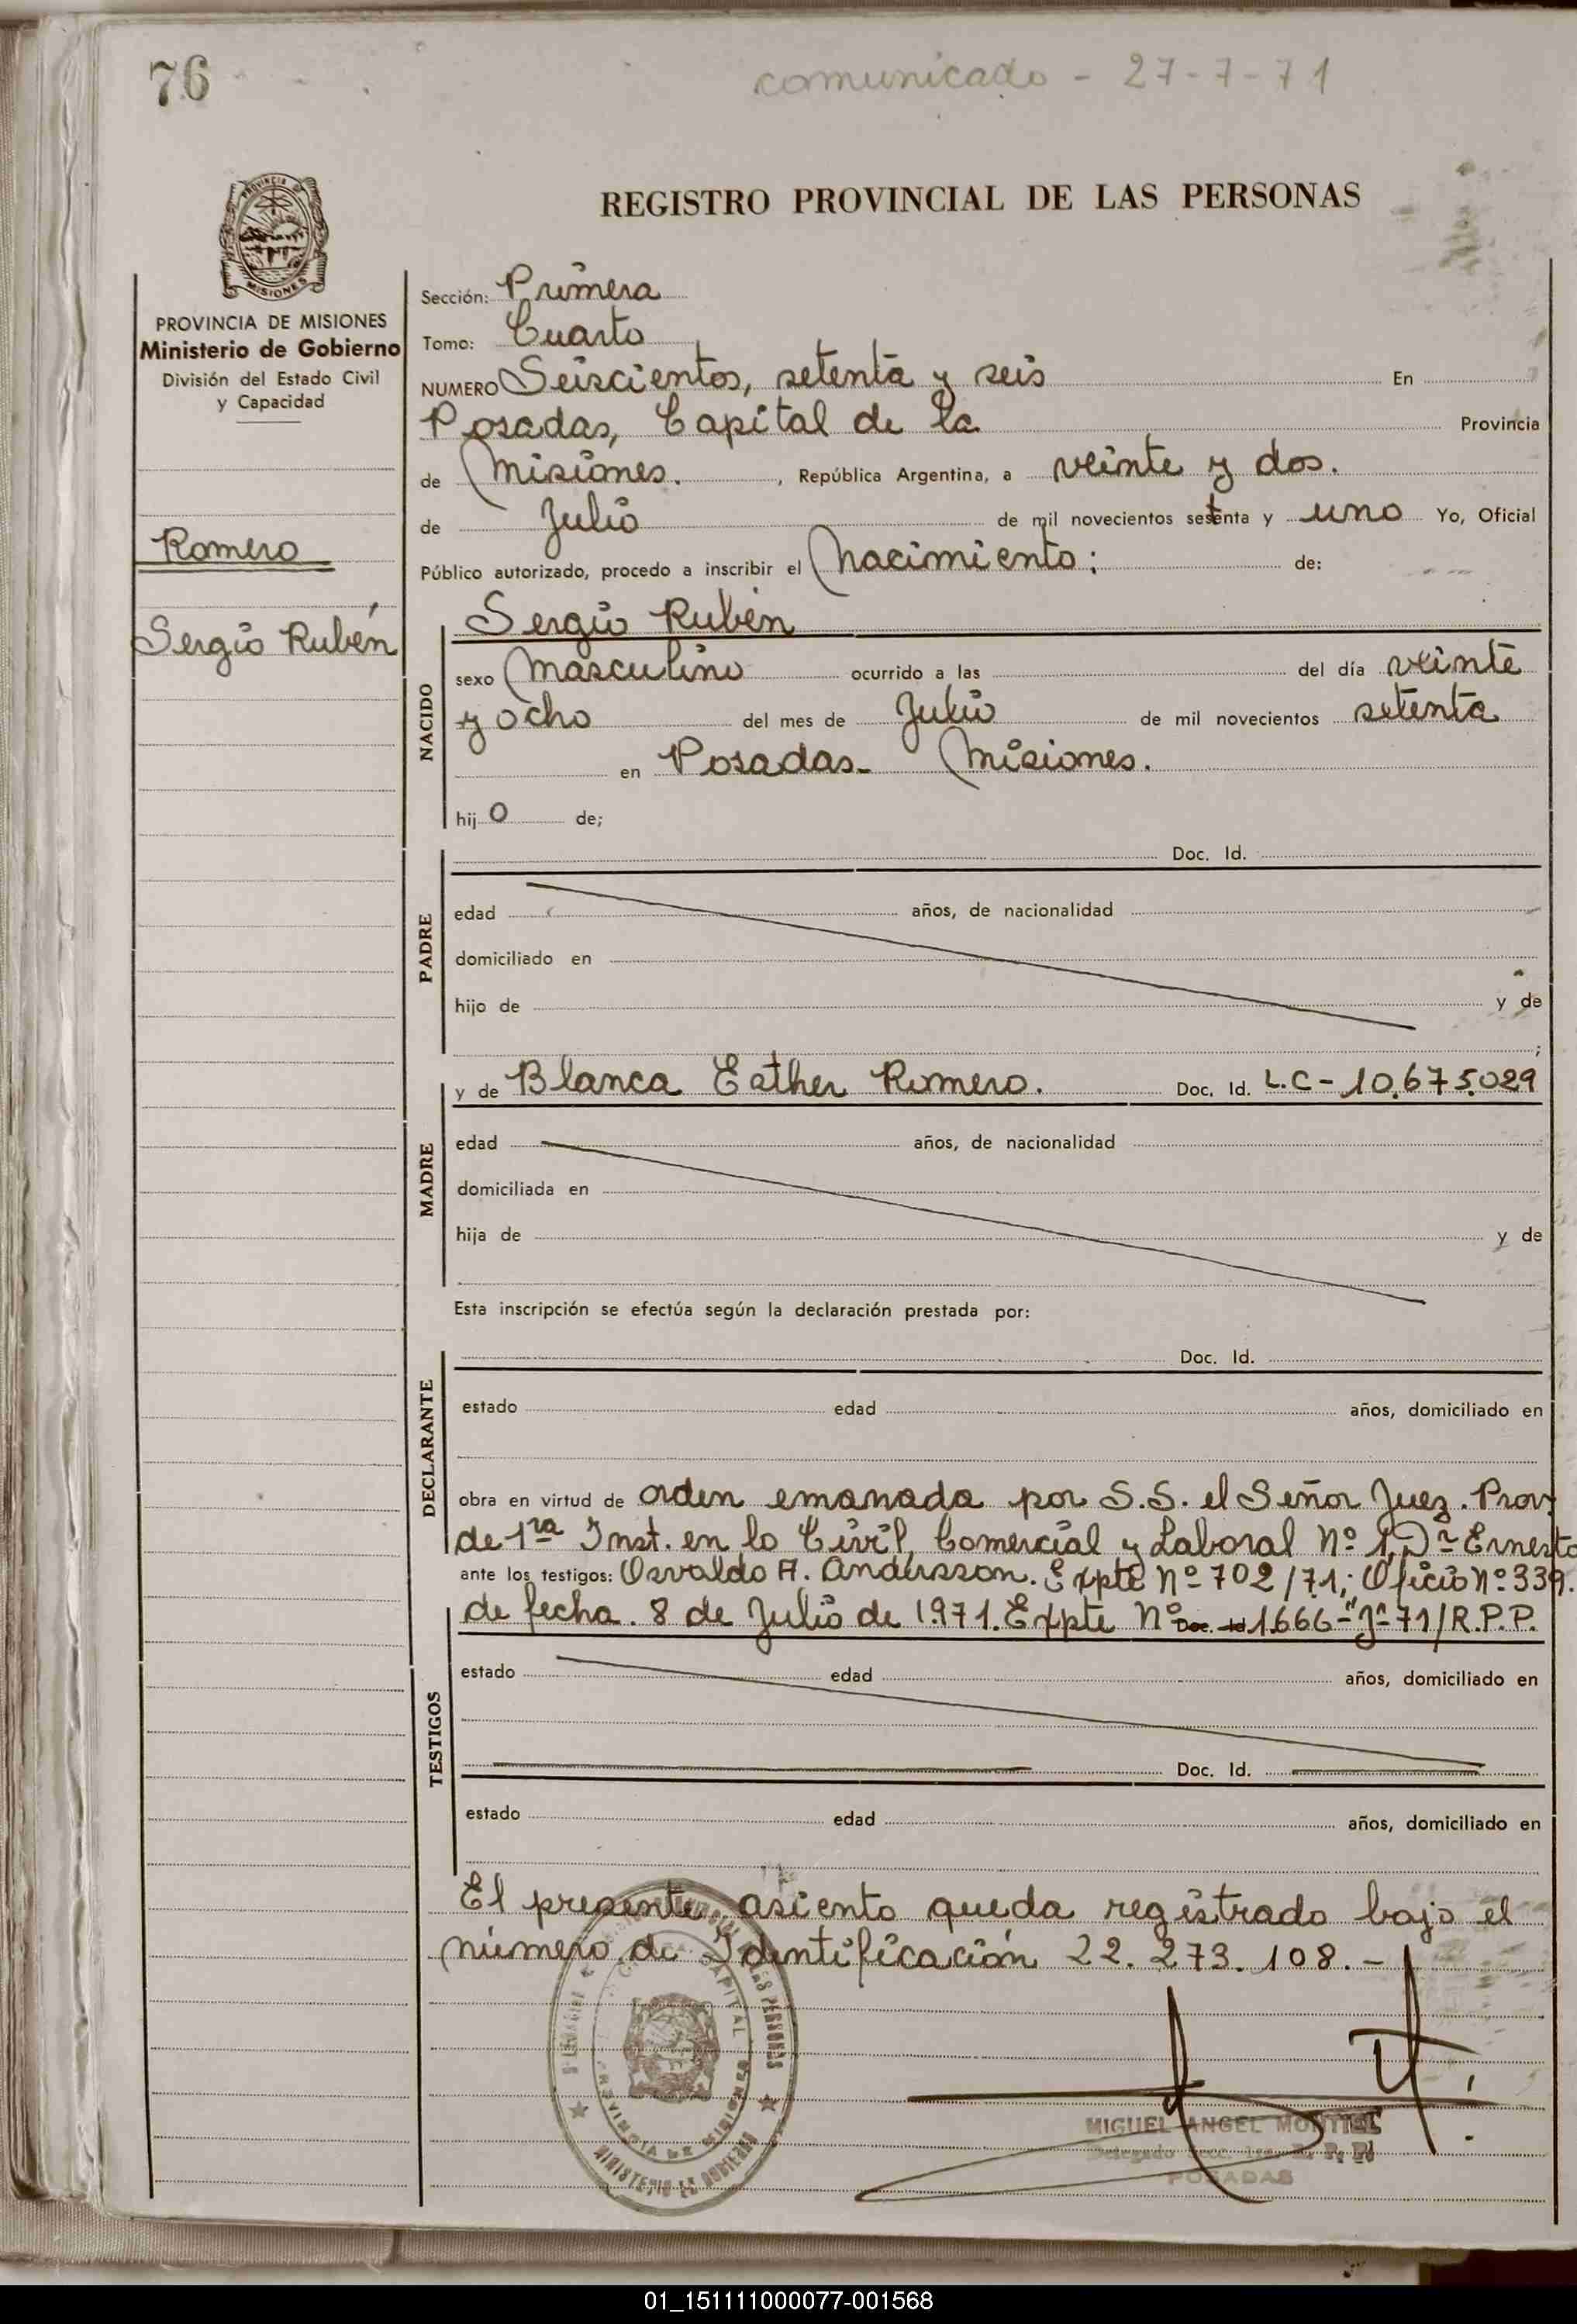 76
comunicado - 27-7-71
REGISTRO PROVINCIAL DE LAS PERSONAS
PROVINCIA DE MISIONES
Ministerio de Gobierno
División del Estado Civil
y Capacidad
Romero
Sergio Rubén
Sección: Primera
Tomo: Cuarto
NUMERO Seiscientos, setenta y seis En
Posadas, Capital de la Provincia
de Misiones. , República Argentina, a veinte y dos.
de Julio de mil novecientos setenta y uno Yo, Oficial
Público autorizado, procedo a inscribir el Nacimiento: de:
NACIDO
Sergio Rubén
sexo Masculino ocurrido a las del día veinte
y ocho del mes de Julio de mil novecientos setenta
en Posadas- Misiones.
hijo de;
PADRE
Doc. Id.
edad años, de nacionalidad
domiciliado en
hijo de y de
;
MADRE
y de Blanca Esther Romero. Doc. Id. L.C- 10.675.029
edad años, de nacionalidad
domiciliada en
hija de y de
Esta inscripción se efectúa según la declaración prestada por:
DECLARANTE
Doc. Id.
estado edad años, domiciliado en
obra en virtud de orden emanada por S.S. el Señor Juez. Prov.
de 1ra Inst. en lo Civil, Comercial y Laboral Nº 1, Dr Ernesto
ante los testigos: Osvaldo A. Andersson. Expte Nº 702/71; Oficio Nº 339.
de fecha. 8 de Julio de 1.971. Expte Nº Doc. Id 1.666-"J"-71/R.P.P.
TESTIGOS
estado edad años, domiciliado en
Doc. Id.
estado edad años, domiciliado en
El presente, asiento queda registrado bajo el
número de Identificación 22.273.108.-
MIGUEL ANGEL MONTIEL
Delegado Secc. 1ra. R. P. P.
POSADAS
MINISTERIO DE GOBIERNO
PROVINCIA DE MISIONES
CAPITAL
01_151111000077-001568